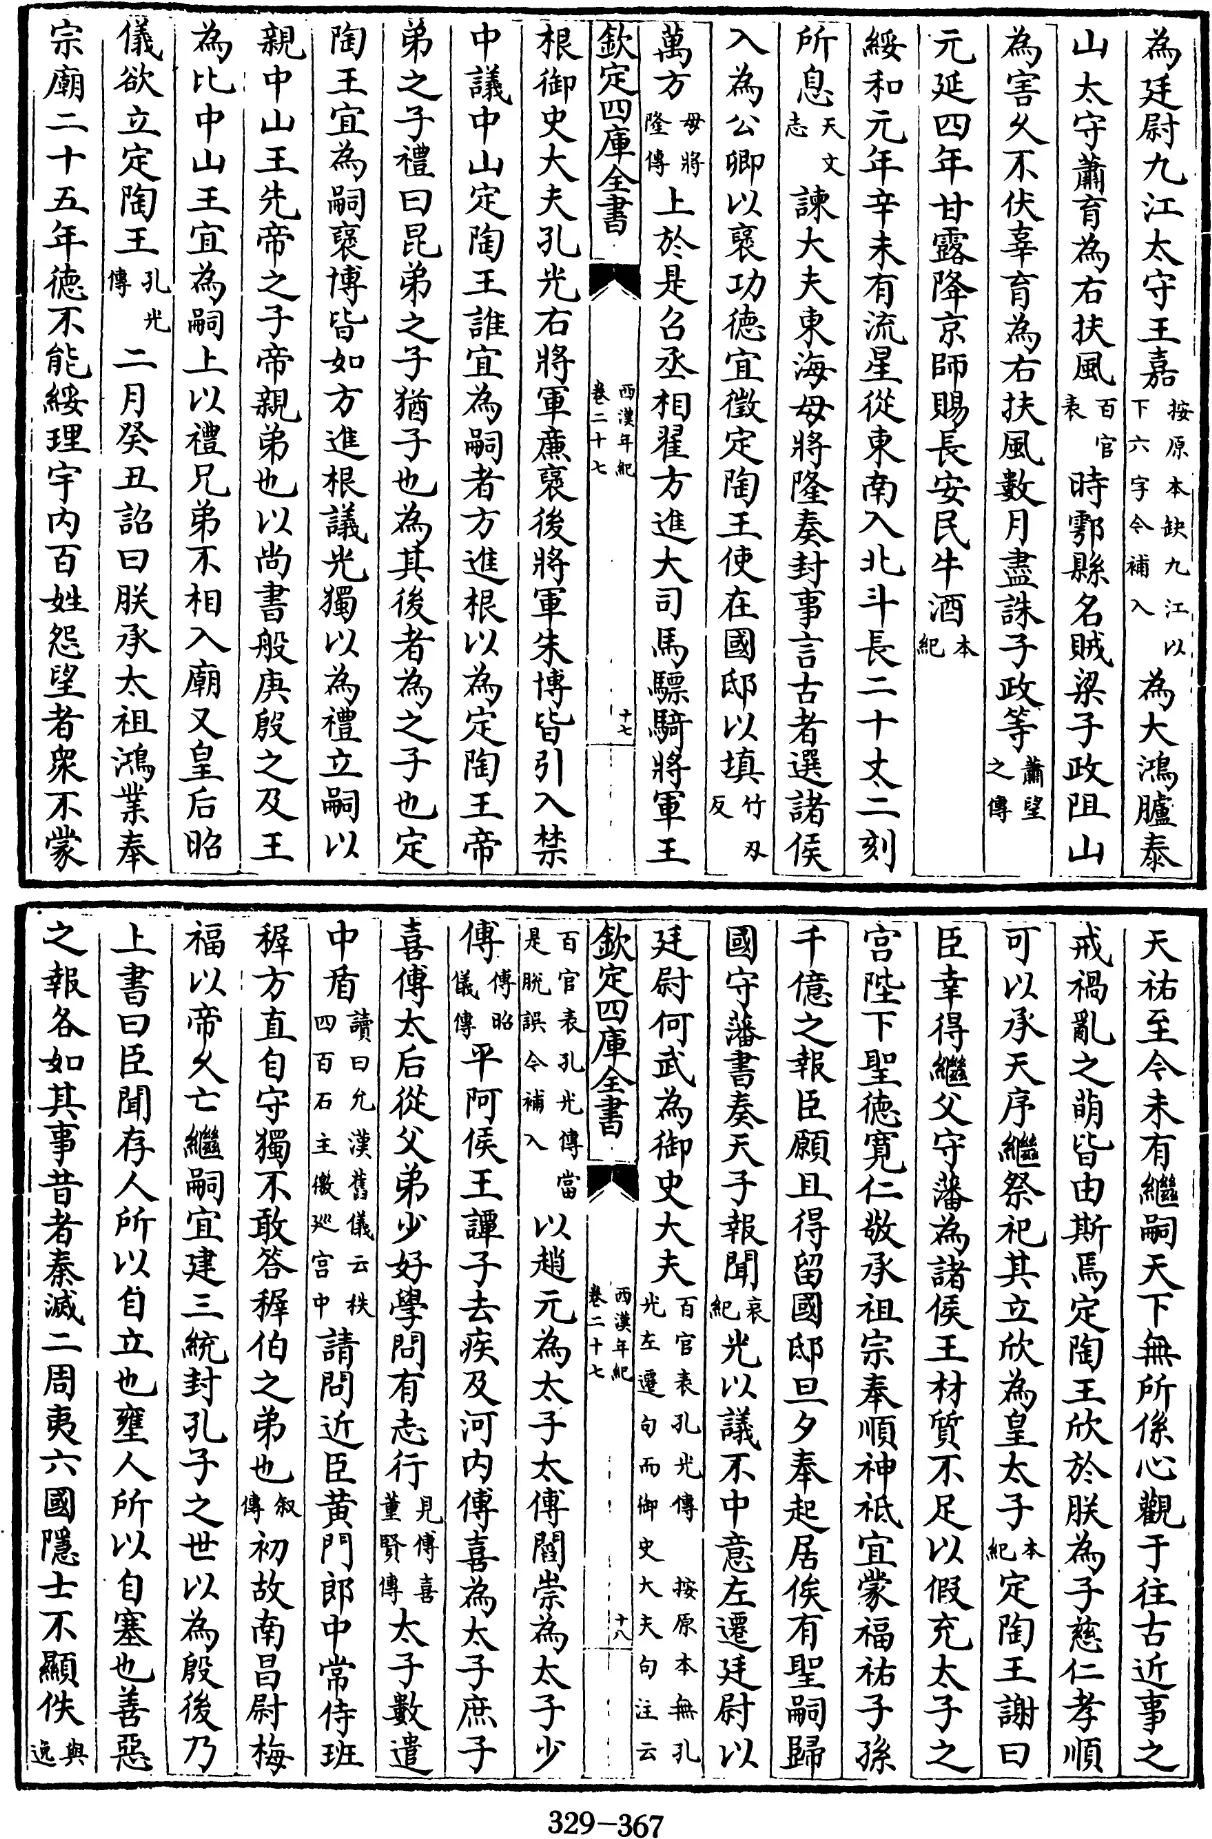 為廷尉九江太守王嘉按原本缺九江以下六字今補入為大鴻臚泰
山太守蕭育為右扶風百官表時鄠縣名賊梁子政阻山
為害久不伏辜育為右扶風數月盡誅子政等蕭望之傳
元延四年甘露降京師賜長安民牛酒本紀
綏和元年辛未有流星從東南入北斗長二十丈二刻
所息天文志諫大夫東海毋將隆奏封事言古者選諸侯
入為公卿以襃功德宜徵定陶王使在國邸以填竹刃反
萬方毋將隆傳上於是召丞相翟方進大司馬驃騎將軍王
欽定四庫全書 西漢年紀卷二十七 十七
根御史大夫孔光右將軍廉襃後將軍朱博皆引入禁
中議中山定陶王誰宜為嗣者方進根以為定陶王帝
弟之子禮曰昆弟之子猶子也為其後者為之子也定
陶王宜為嗣襃博皆如方進根議光獨以為禮立嗣以
親中山王先帝之子帝親弟也以尚書般庚殷之及王
為比中山王宜為嗣上以禮兄弟不相入廟又皇后昭
儀欲立定陶王孔光傳二月癸丑詔曰朕承太祖鴻業奉
宗廟二十五年德不能綏理宇內百姓怨望者衆不蒙
天祐至今未有繼嗣天下無所係心觀于往古近事之
戒禍亂之萌皆由斯焉定陶王欣於朕為子慈仁孝順
可以承天序繼祭祀其立欣為皇太子本紀定陶王謝曰
臣幸得繼父守藩為諸侯王材質不足以假充太子之
宮陛下聖德寬仁敬承祖宗奉順神祇宜蒙福祐子孫
千億之報臣願且得留國邸旦夕奉起居俟有聖嗣歸
國守藩書奏天子報聞哀紀光以議不中意左遷廷尉以
廷尉何武為御史大夫百官表孔光傳 按原本無孔光左遷句而御史大夫句注云
欽定四庫全書 西漢年紀卷二十七 十八
百官表孔光傳當是脫誤今補入以趙元為太子太傅閻崇為太子少
傅傅昭儀傳平阿侯王譚子去疾及河內傅喜為太子庶子
喜傅太后從父弟少好學問有志行見傅喜董賢傳太子數遣
中盾讀曰允漢舊儀云秩四百石主徼巡宮中請問近臣黃門郎中常侍班
穉方直自守獨不敢答穉伯之弟也叙傳初故南昌尉梅
福以帝久亡繼嗣宜建三統封孔子之世以為殷後乃
上書曰臣聞存人所以自立也壅人所以自塞也善惡
之報各如其事昔者秦滅二周夷六國隱士不顯佚與逸
329-367